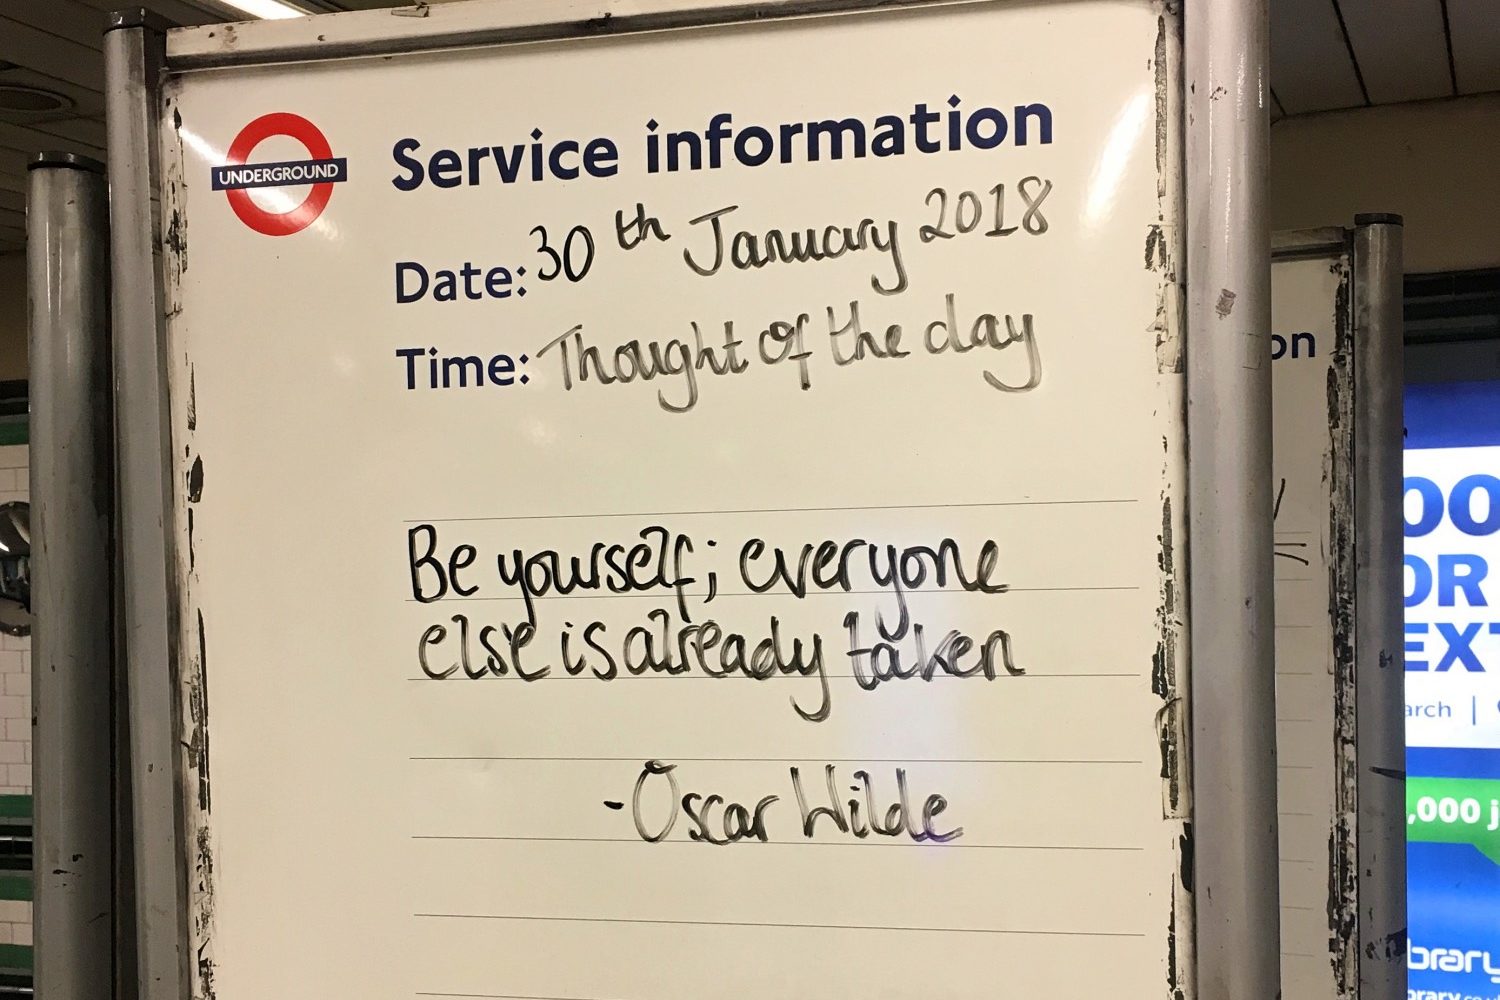 UNDERGROUND
Service information
Date: 30th January 2018
Time: Thought of the day
Be yourself; everyone
else is already taken
-Oscar Wilde
on
OR
,000 j